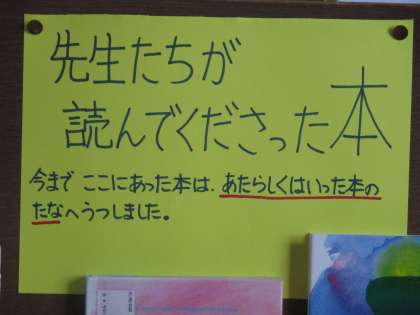 先生たちが
読んでくださった本
今まで ここにあった本は、あたらしくはいった本の
たなへうつしました。